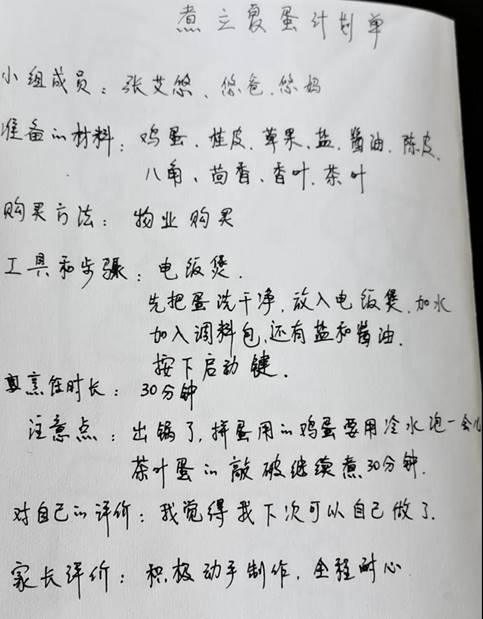 煮立夏蛋计划单
小组成员：张艾悠、悠爸、悠妈
准备的材料：鸡蛋、桂皮、草果、盐、酱油、陈皮、
八角、茴香、香叶、茶叶
购买方法：物业购买
工具和步骤：电饭煲.
先把蛋洗干净,放入电饭煲.加水
加入调料包,还有盐和酱油.
按下启动键.
烹饪时长：30分钟
注意点：出锅了,拼蛋用的鸡蛋要用冷水泡一会儿
茶叶蛋的敲破继续煮30分钟.
对自己的评价：我觉得我下次可以自己做了.
家长评价：积极动手制作,全程耐心.